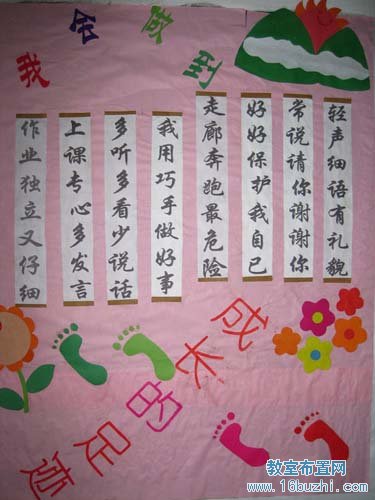 我会做到
轻声细语有礼貌
常说请你谢谢你
好好保护我自己
走廊奔跑最危险
我用巧手做好事
多听多看少说话
上课专心多发言
作业独立又仔细
成长的足迹
教室布置网
www.16buzhi.com